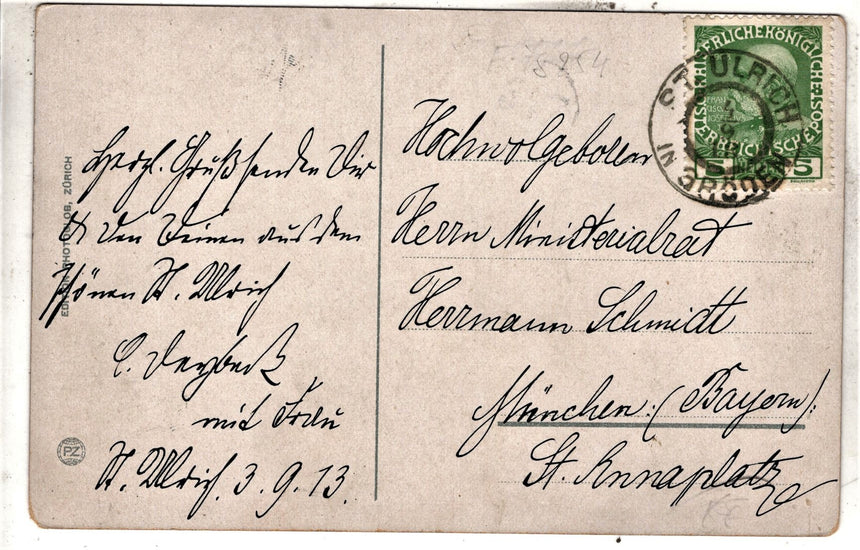 Herzl. Grüße senden Dir
& den Deinen aus dem
schönen St. Ulrich
mit Frau
St. Ulrich, 3.9.13.
EDITION PHOTOGLOB, ZÜRICH
PZ
Hochwolgeboren
Herrn Ministerialrat
Herrmann Schmidt
München: (Bayern):
St. Annaplatz
ST. ULRICH
IN GRÖDEN
KAISERLICHE KÖNIGLICHE
ÖSTERREICHISCHE POST
5 5